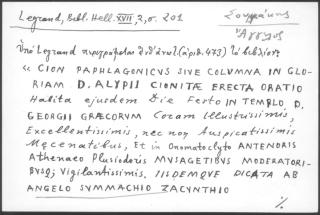 Legrand, Bibl. Hell. XVII, 2, σ. 201
Σουμμάκης
Ἄγγελος
Ὑπὸ Legrand περιγράφεται (ἀριθ. 473) τὸ βιβλίον:
« CION PAPHLAGONICUS SIVE COLUMNA IN GLO-
RIAM D. ALYPII CIONITÆ ERECTA ORATIO
Habita ejusdem Die Festo IN TEMPLO D.
GEORGII GRÆCORUM Coram Illustrissimis,
Excellentissimis, nec non Auspicatissimis
Mæcenatibus, Et in Onomatoclyto ANTENORIS
Athenaeo Plusiodoris MUSAGETIBUS MODERATORI-
BUSQ; Vigilantissimis. IISDEMQUE DICATA AB
ANGELO SUMMACHIO ZACYNTHIO